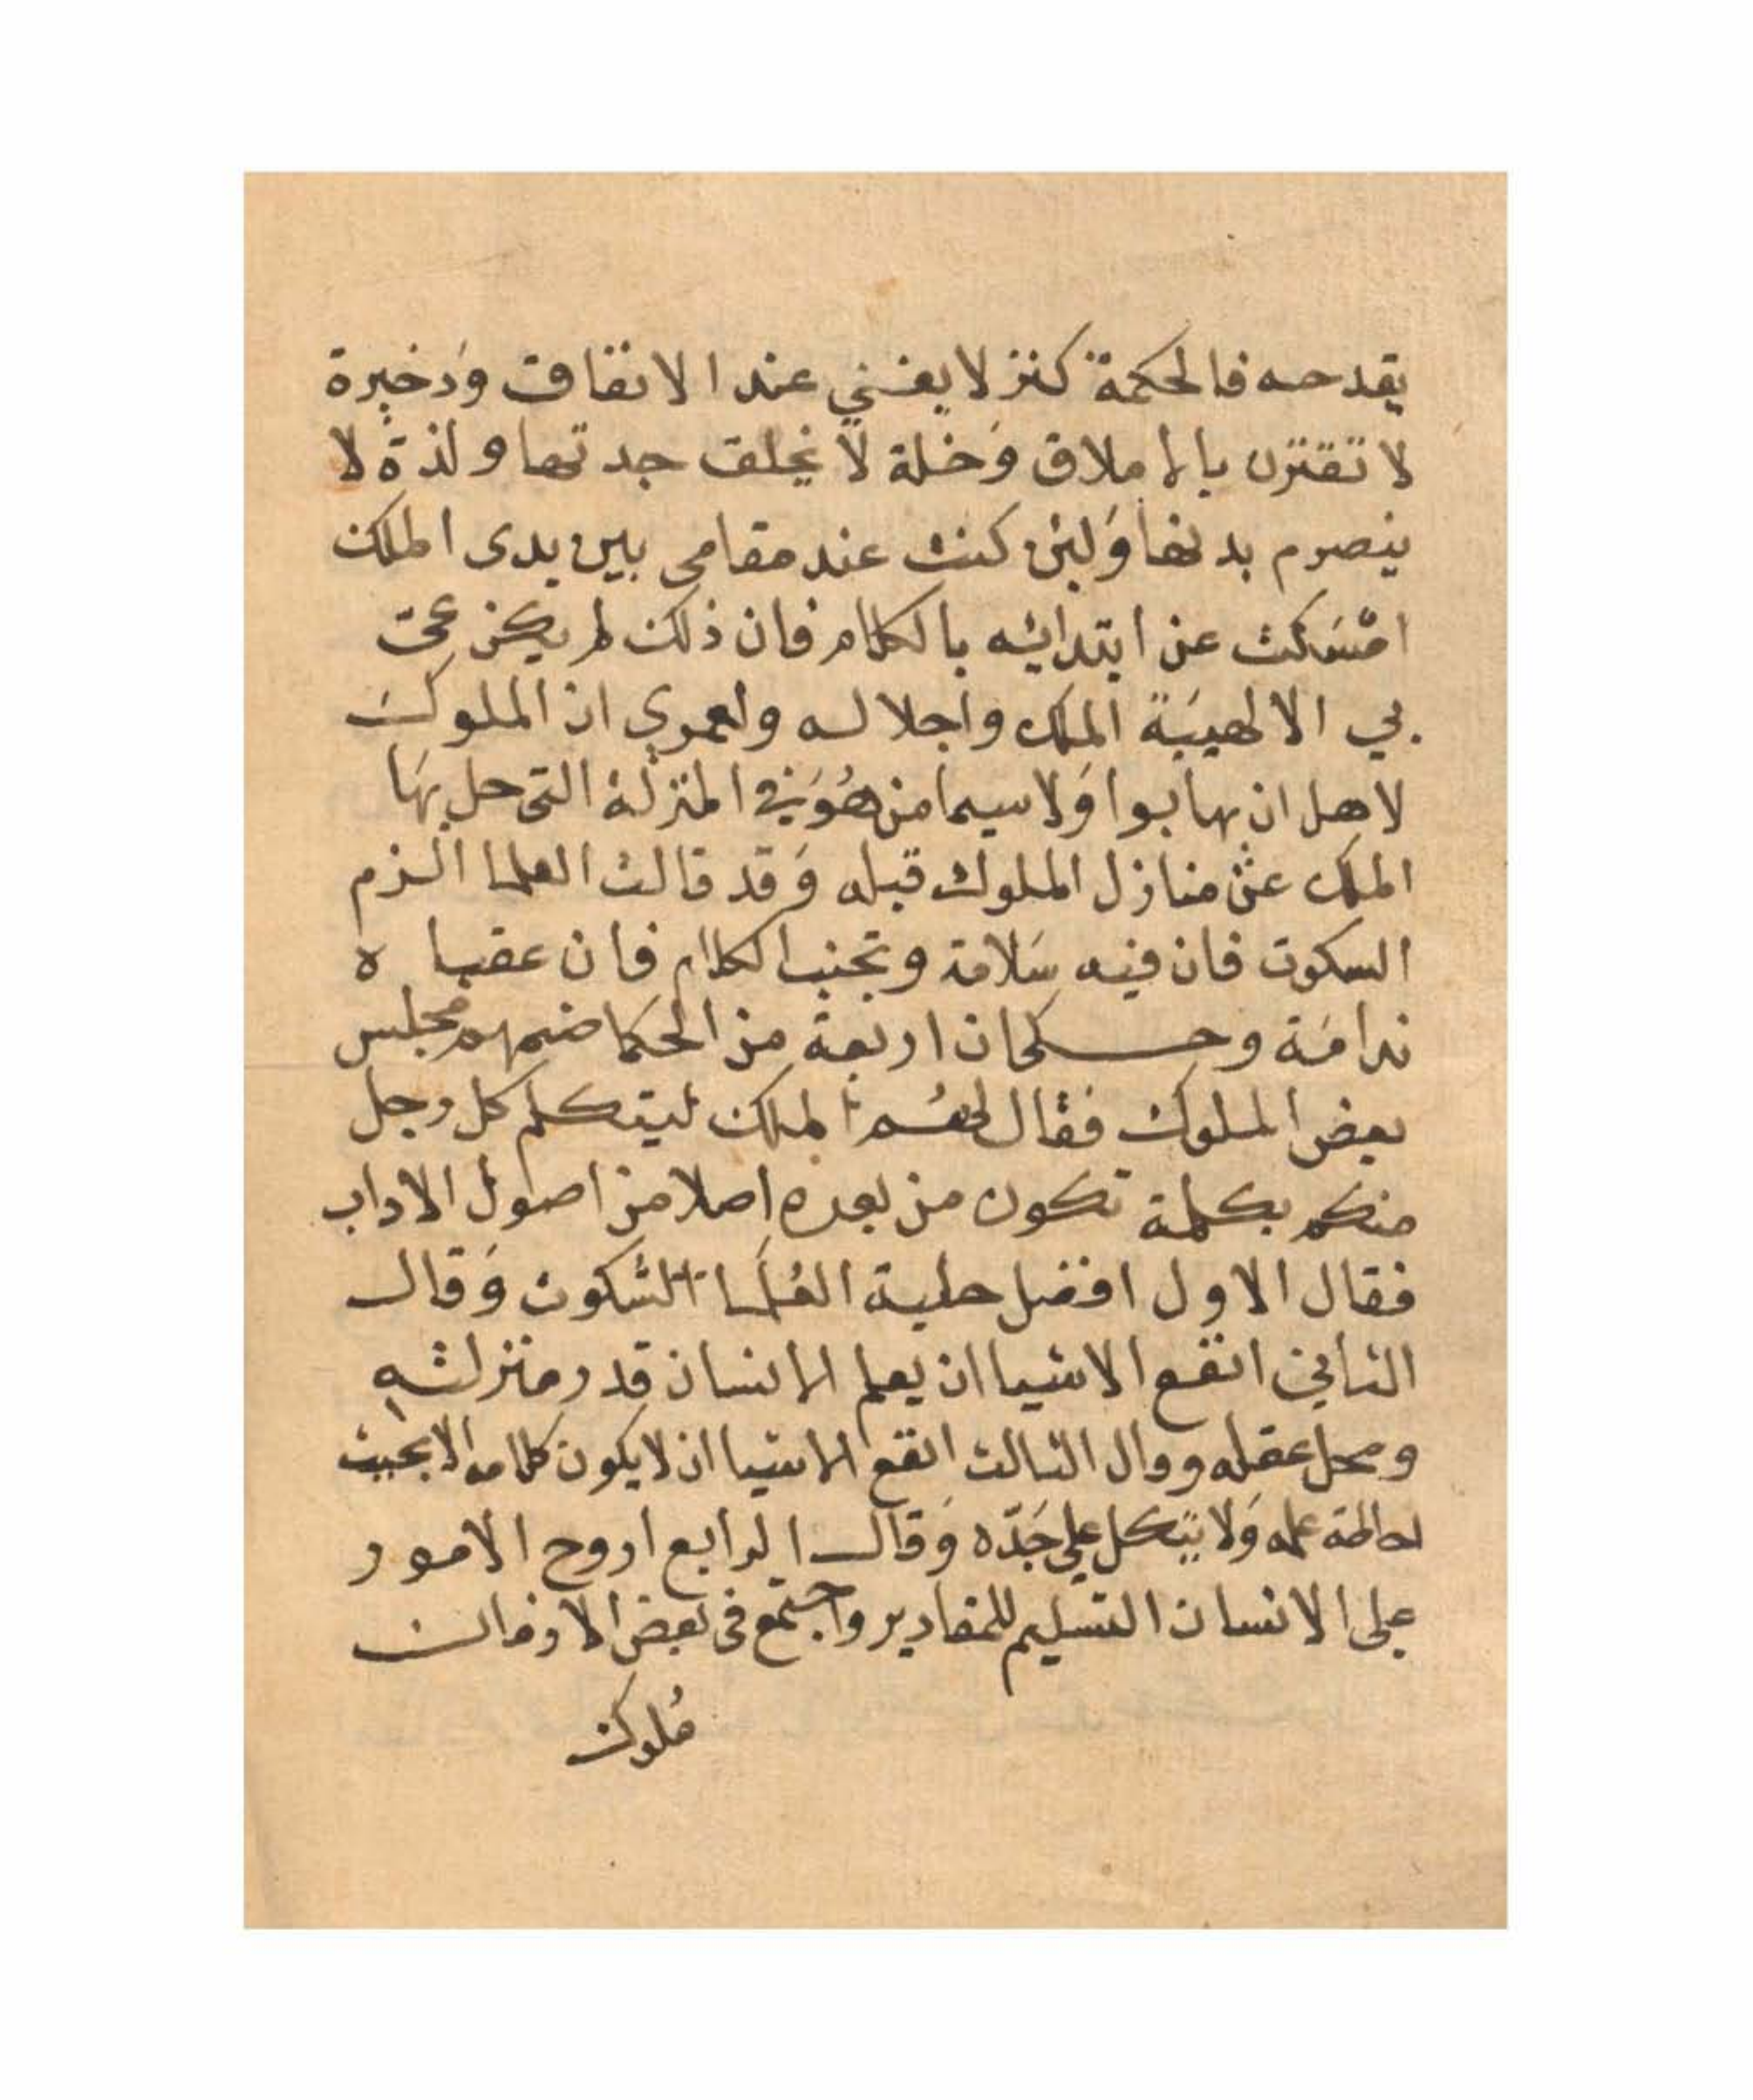 يقدحه فالحكمة كنز لا يفني عند الانفاق وذخيرة
لا تقترن بالاملاق وَحلة لا تخلق جدتها ولذة لا
ينصرم وَلين كنت عند مقامي بين يدى الملك
امْسَكت عن ابتدايه بالكلام فان ذلك لم يكن
بي الا لهيبَة الملك واجلاله ولعمري ان الملوك
لاهل ان يهابوا وَلا سيما من هُوَ في المنزلة التى حل بهَا
الملك عن منازل الملوك قبله وَقد قالت العلما الزم
السكوت فان فيه سَلامة وتجنب الكلام فان عقباه
ندامَة وحكى ان اربعة من الحكما ضمهم مجلس
بعض الملوك فقال لهُم الملك ليتكلم كل رجل
منكم بكلمة تكون من بعده اصلا من اصول الاداب
فقال الاول افضل حلية العُلَما السكوت وَقال
الثاني انفع الاشيا ان يعلم الانسان قدر منزلته
ومحل عقله وقال الثالث انفع الاشيا ان لا يكون كلامه الا بحيث
احاطة علمه وَلا يتكل على جَدّه وَقال الرابع اروح الامور
على الانسان التسليم للمقادير واجتمع فى بعض الاوقات
مُلوك